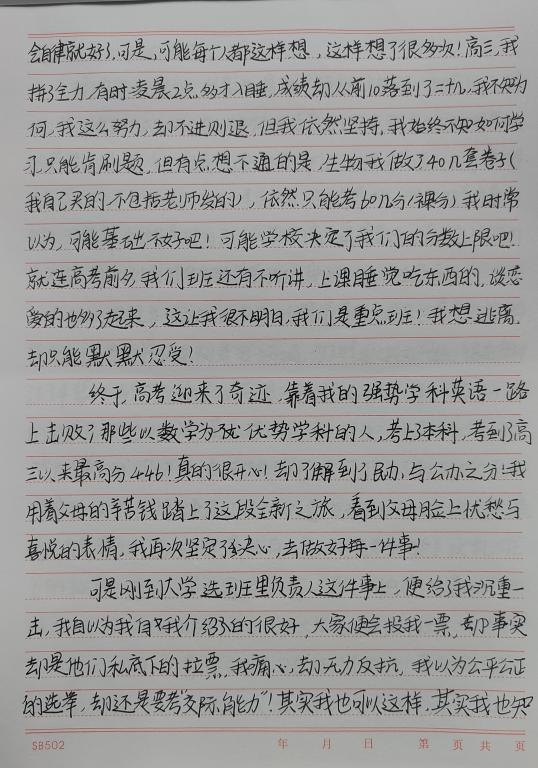 会自律就好了,可是,可能每个人都这样想,这样想了很多次!高三,我
拼了全力,有时凌晨2点多才入睡,成绩却从前10落到了二十几,我不知为
何,我这么努力,却不进则退,但我依然坚持,我始终不知如何学
习只能肯刷题,但有点想不通的是,生物我做了40几套卷子(
我自己买的,不包括老师发的),依然只能考60几分(裸分)我时常
以为,可能基础不好吧!可能学校决定了我们的分数上限吧!
就连高考前夕,我们班还有不听讲,上课睡觉吃东西的,谈恋
爱的也多了起来,这让我很不明白,我们是重点班!我想逃离,
却只能默默忍受!
终于,高考迎来了奇迹,靠着我的强势学科英语一路
上击败了那些以数学为优势学科的人,考上了本科,考到了高
三以来最高分446!真的很开心!却了解到了民办与公办之分!我
用着父母的辛苦钱踏上了这段全新之旅,看到父母脸上忧愁与
喜悦的表情,我再次坚定了决心,去做好每一件事!
可是刚到大学选班里负责人这件事上,便给了我沉重一
击,我自以为我自我介绍的很好,大家便会投我一票,却事实
却是他们私底下的拉票,我痛心,却无力反抗,我以为公平公正
的选举,却还是要考"交际能力"!其实我也可以这样,其实我也知
SB502
年 月 日 第 页 共 页